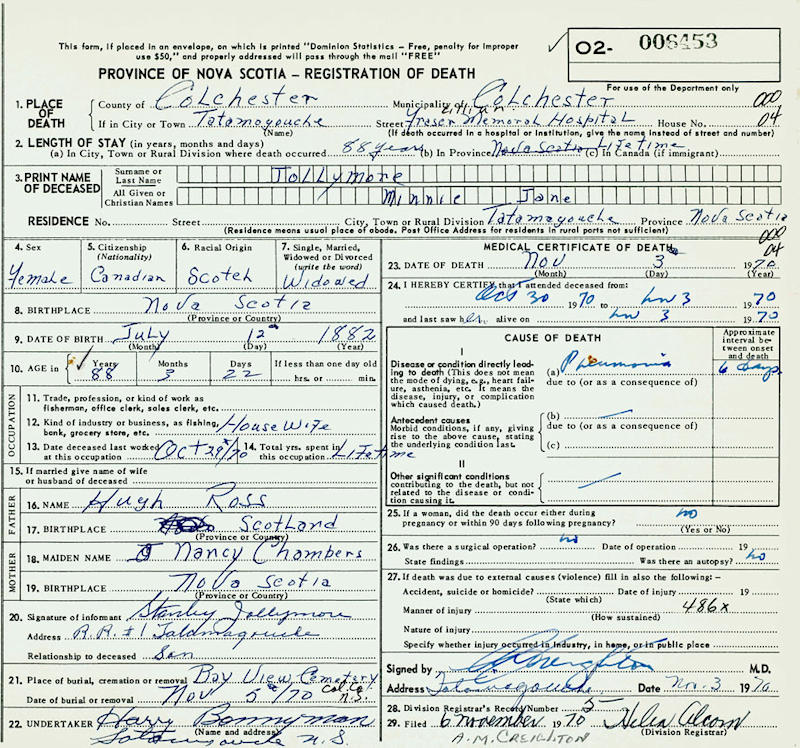 This form, if placed in an envelope, on which is printed "Dominion Statistics – Free, penalty for improper
use $50," and properly addressed will pass through the mail "FREE"
O2- 006453
For use of the Department only
PROVINCE OF NOVA SCOTIA – REGISTRATION OF DEATH
000
04
1. PLACE OF DEATH
County of Colchester Municipality of Colchester
If in City or Town Tatamagouche Street Fraser Memorial Hospital House No.
(Name) (If death occurred in a hospital or institution, give the name instead of street and number)
2. LENGTH OF STAY (in years, months and days)
(a) In City, Town or Rural Division where death occurred 88 years (b) In Province Nova Scotia (c) In Canada (if immigrant) Lifetime
3. PRINT NAME OF DECEASED
Surname or Last Name Jollymore
All Given or Christian Names Minnie Jane
RESIDENCE No. Street City, Town or Rural Division Tatamagouche Province Nova Scotia
(Residence means usual place of abode. Post Office Address for residents in rural parts not sufficient)
000
04
4. Sex Female
5. Citizenship (Nationality) Canadian
6. Racial Origin Scotch
7. Single, Married, Widowed or Divorced (write the word) Widowed
8. BIRTHPLACE Nova Scotia
(Province or Country)
9. DATE OF BIRTH July 12th 1882
(Month) (Day) (Year)
10. AGE in Years 88 Months 3 Days 22 If less than one day old
hrs. or min.
OCCUPATION
11. Trade, profession, or kind of work as
fisherman, office clerk, sales clerk, etc.
12. Kind of industry or business, as fishing,
bank, grocery store, etc. Housewife
13. Date deceased last worked at this occupation Oct 29th/70 14. Total yrs. spent in this occupation Lifetime
15. If married give name of wife
or husband of deceased
FATHER
16. NAME Hugh Ross
17. BIRTHPLACE Scotland
(Province or Country)
MOTHER
18. MAIDEN NAME Nancy Chambers
19. BIRTHPLACE Nova Scotia
(Province or Country)
20. Signature of informant Stanley Jollymore
Address R.R. #1 Tatamagouche
Relationship to deceased Son
21. Place of burial, cremation or removal Bay View Cemetery
Col. Co. N.S.
Date of burial or removal Nov 5th/70
22. UNDERTAKER Harry Bannyman
(Name and address)
Tatamagouche N.S.
MEDICAL CERTIFICATE OF DEATH
23. DATE OF DEATH Nov 3 1970
(Month) (Day) (Year)
24. I HEREBY CERTIFY that I attended deceased from:
Oct 30 1970 to Nov 3 1970
and last saw her alive on Nov 3 1970
CAUSE OF DEATH
Approximate interval between onset and death
I
Disease or condition directly leading to death (This does not mean the mode of dying, e.g., heart failure, asthenia, etc. It means the disease, injury, or complication which caused death.)
(a) Pneumonia 6 days
due to (or as a consequence of)
Antecedent causes
Morbid conditions, if any, giving rise to the above cause, stating the underlying condition last.
(b)
due to (or as a consequence of)
(c)
II
Other significant conditions
contributing to the death, but not related to the disease or condition causing it.
25. If a woman, did the death occur either during
pregnancy or within 90 days following pregnancy? no
(Yes or No)
26. Was there a surgical operation? no Date of operation 19
State findings Was there an autopsy? no
27. If death was due to external causes (violence) fill in also the following: –
Accident, suicide or homicide? Date of injury 19
(State which)
Manner of injury 486x
(How sustained)
Nature of injury
Specify whether injury occurred in industry, in home, or in public place
Signed by Creighton M.D.
Address Tatamagouche Date Nov. 3 1970
28. Division Registrar's Record Number 5
29. Filed 6 November 1970 Helen Alcorn
(Division Registrar)
A.M. CREIGHTON